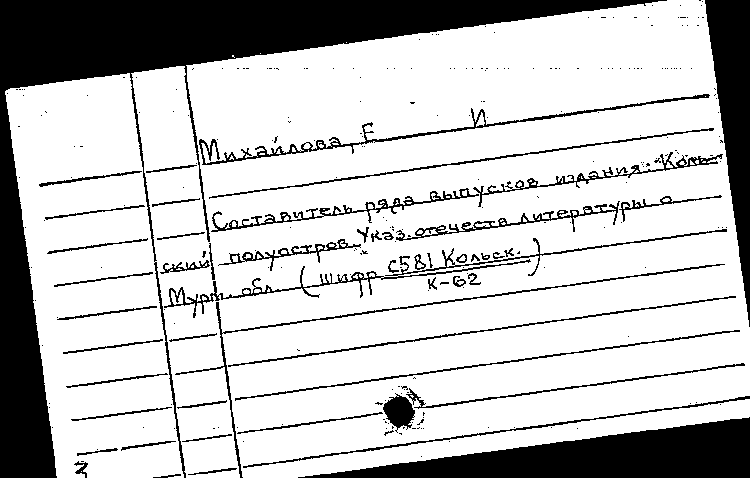 Михайлова, Е И
Составитель ряда выпусков издания: "Коль-
ский полуостров. Указ. отечеств литературы о
Мурм. обл. (шифр С581 Кольск.)
К-62
3